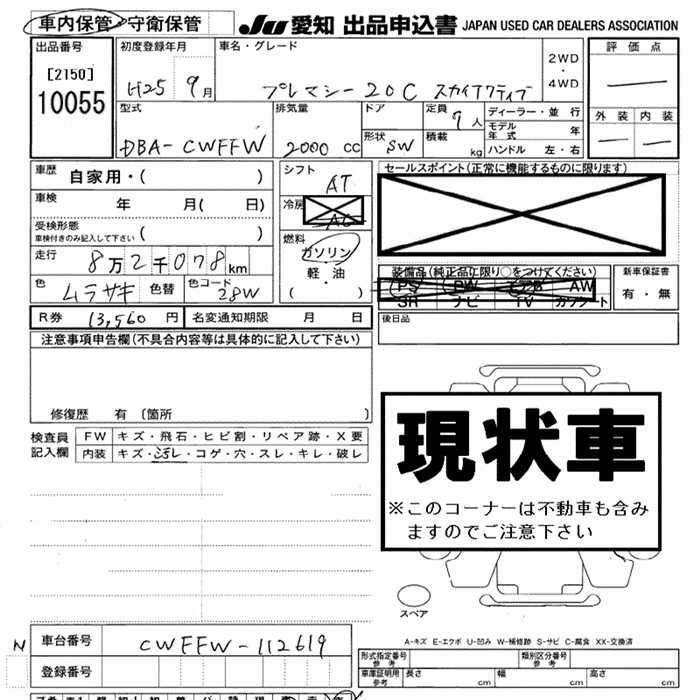 車内保管・守衛保管
JU 愛知 出品申込書 JAPAN USED CAR DEALERS ASSOCIATION
出品番号 初度登録年月 車名・グレード 評価点
[2150]
10055 H25 9月 プレマシー 20C スカイアクティブ 2WD・4WD
型式 排気量 ドア 定員 7人 ディーラー・並行 外装 内装
モデル年式 年
DBA-CWFFW 2000cc 形状 SW 積載 kg ハンドル 左・右
車歴 自家用・( )
シフト AT
セールスポイント(正常に機能するものに限ります)
車検 年 月( 日)
冷房 AC
受検形態
車検付きのみ記入して下さい ( )
燃料 ガソリン
軽・油
( ・ )
走行 8万2千078km
装備品(純正品に限り○をつけてください)
PS PW エアB AW
SR ナビ TV カワシート
新車保証書
有・無
色 ムラサキ 色替 色コード 28W
R券 13,560円 名変通知期限 月 日
後日品
注意事項申告欄(不具合内容等は具体的に記入して下さい)
修復歴 有 〔箇所 〕
現状車
※このコーナーは不動車も含み
ますのでご注意下さい
検査員
記入欄
FW キズ・飛石・ヒビ割・リペア跡・X要
内装 キズ・汚レ・コゲ・穴・スレ・キレ・破レ
スペア
A-キズ E-エクボ U-凹み W-補修跡 S-サビ C-腐食 XX-交換済
N
車台番号 CWFFW-112619
登録番号
形式指定番号
参考
類別区分番号
参考
車庫証明用
参考
長さ cm 幅 cm 高さ cm